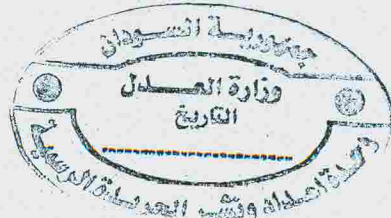 جمهورية السودان
وزارة العدل
التاريخ
وحدة إعداد ونشر الجريدة الرسمية